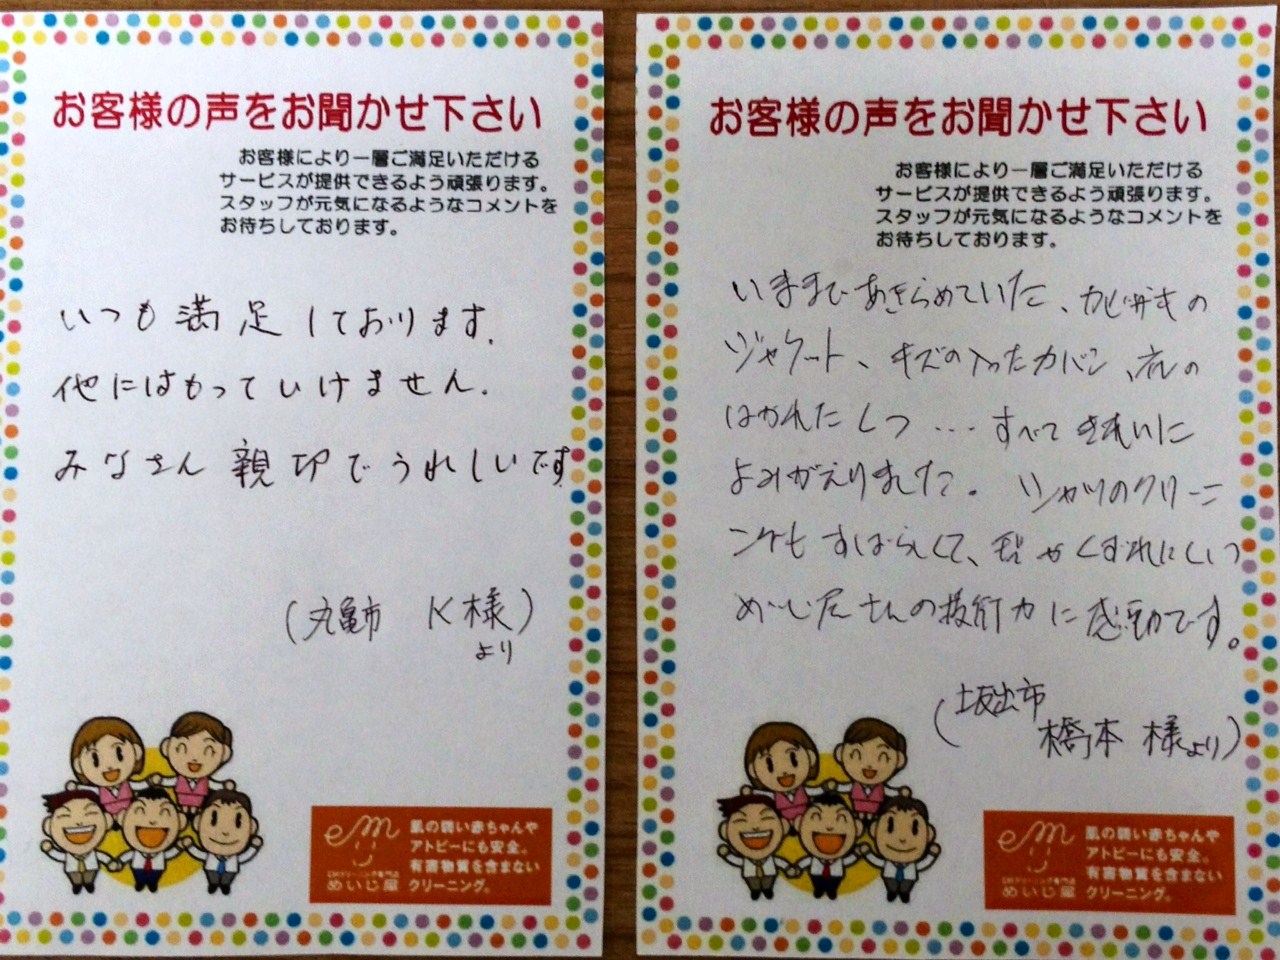 お客様の声をお聞かせ下さい
お客様により一層ご満足いただける
サービスが提供できるよう頑張ります。
スタッフが元気になるようなコメントを
お待ちしております。
いつも満足しております.
他にはもっていけません.
みなさん親切でうれしいです
(丸亀市 K様)
より
めいじ屋
肌の弱い赤ちゃんや
アトピーにも安全。
有害物質を含まない
クリーニング。
お客様の声をお聞かせ下さい
お客様により一層ご満足いただける
サービスが提供できるよう頑張ります。
スタッフが元気になるようなコメントを
お待ちしております。
いままであきらめていた、カビだらけの
ジャケット、キズの入ったカバン、衣の
はがれたくつ…すべてきれいに
よみがえりました。 Yシャツのクリーニ
ングもすばらしくて、型がくずれにくい
めいじ屋さんの技術力に感動です。
(坂出市
橋本 様より)
めいじ屋
肌の弱い赤ちゃんや
アトピーにも安全。
有害物質を含まない
クリーニング。